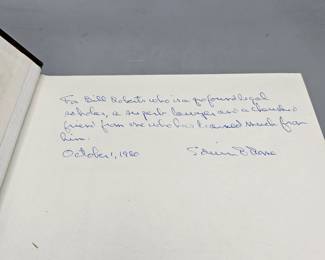 To Bill Roberts who is a profound legal
scholar, a superb lawyer and a cherished
friend from one who has learned much from
him.
October 1, 1980 Edwin B